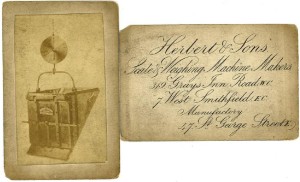 Herbert & Sons
Scale & Weighing Machine Makers
Grays Inn Road W.C.
7 West Smithfield E.C.
Manufactory
47 St. George Street E.